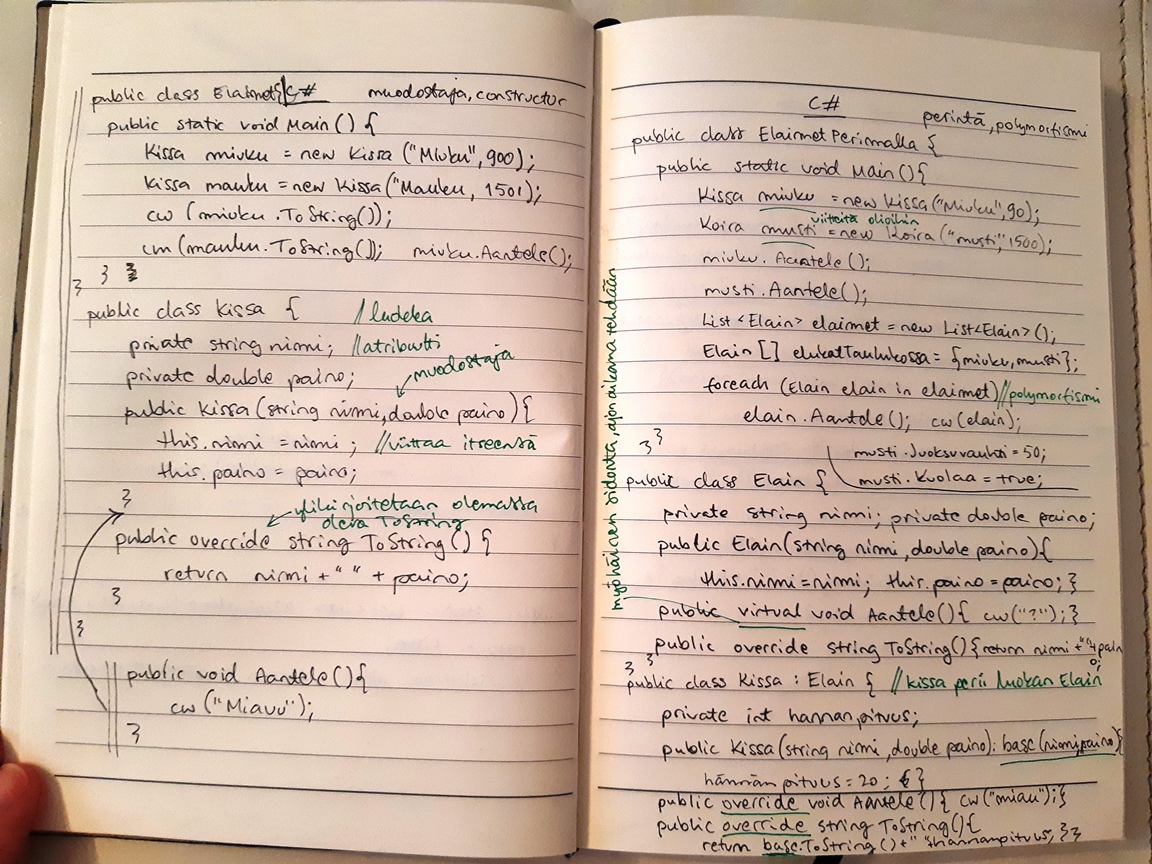 public class Elaimet{ C# muodostaja, constructor
public static void Main() {
Kissa miuku = new Kissa ("Miuku", 900);
Kissa mauku = new Kissa("Mauku, 1501);
cw (miuku.ToString());
cw (mauku.ToString()); miuku.Aantele();
}
}
public class Kissa { //luokka
private string nimi; //atribuutti
private double paino; muodostaja
public Kissa (string nimi, double paino){
this.nimi = nimi; //viittaa itseensä
this.paino = paino;
}
ylikirjoitetaan olemassa
oleva ToString
public override string ToString() {
return nimi + " " + paino;
}
}
public void Aantele(){
cw ("Miauu");
}
C#
perintä, polymorfismi
public class ElaimetPerimalla {
public static void Main(){
Kissa miuku = new Kissa("Miuku", 90);
viitteitä olioihin
Koira musti = new Koira ("musti", 1500);
miuku.Aantele();
musti.Aantele();
List<Elain> elaimet = new List<Elain>();
Elain[] elukatTaulukossa = {miuku, musti};
foreach (Elain elain in elaimet) //polymorfismi
elain.Aantele(); cw(elain);
}
}
musti.Juoksuvauhti = 50;
musti.Kuolaa = true;
public class Elain {
private string nimi; private double paino;
public Elain(string nimi, double paino){
this.nimi = nimi; this.paino = paino; }
public virtual void Aantele(){ cw("?"); }
myöhäinen sidonta, ajon aikana tehdään
public override string ToString(){return nimi +" "+pain
o;
} }
public class Kissa : Elain { //kissa perii luokan Elain
private int hannanpituus;
public Kissa(string nimi, double paino): base(nimi,paino){
hännänpituus = 20; }
public override void Aantele(){ cw("miau");}
public override string ToString(){
return base.ToString()+" "+hannanpituus; }}